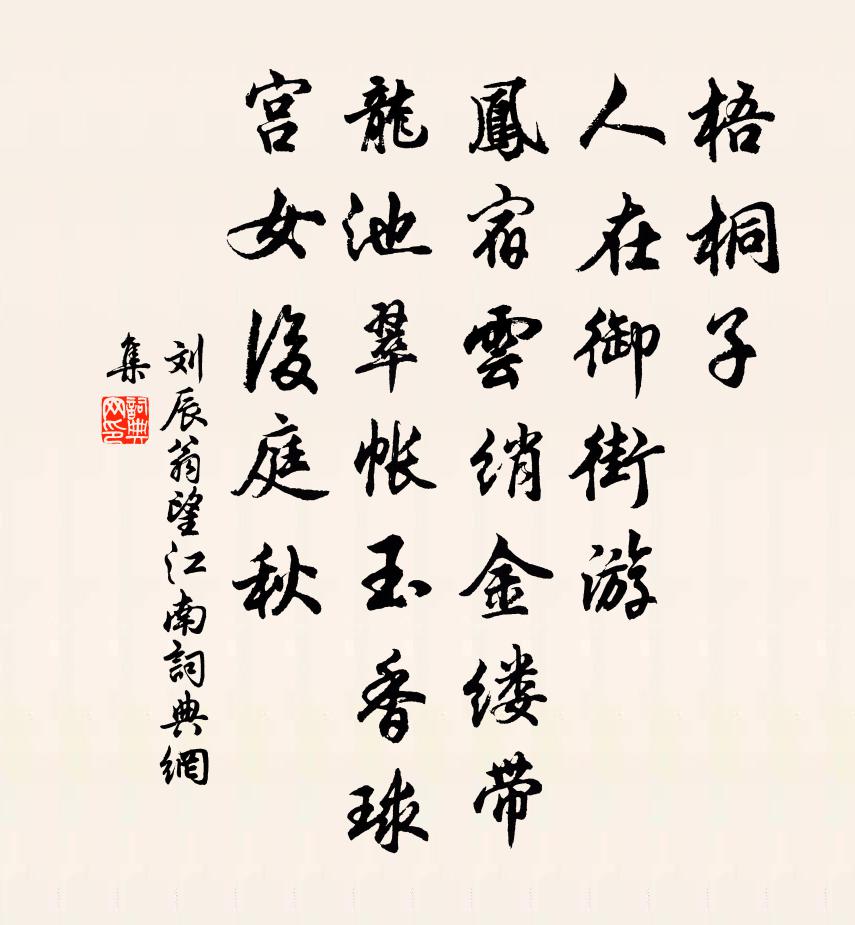 梧桐子
人在御街游
鳳宿雲綃金缕帶
龍池翠帐玉香球
宫女後庭秋
刘辰翁望江南詞典網
集
詞典
网印